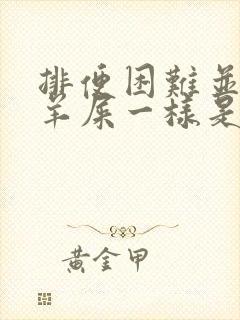 排便困難並
羊屎一樣是
黃金甲